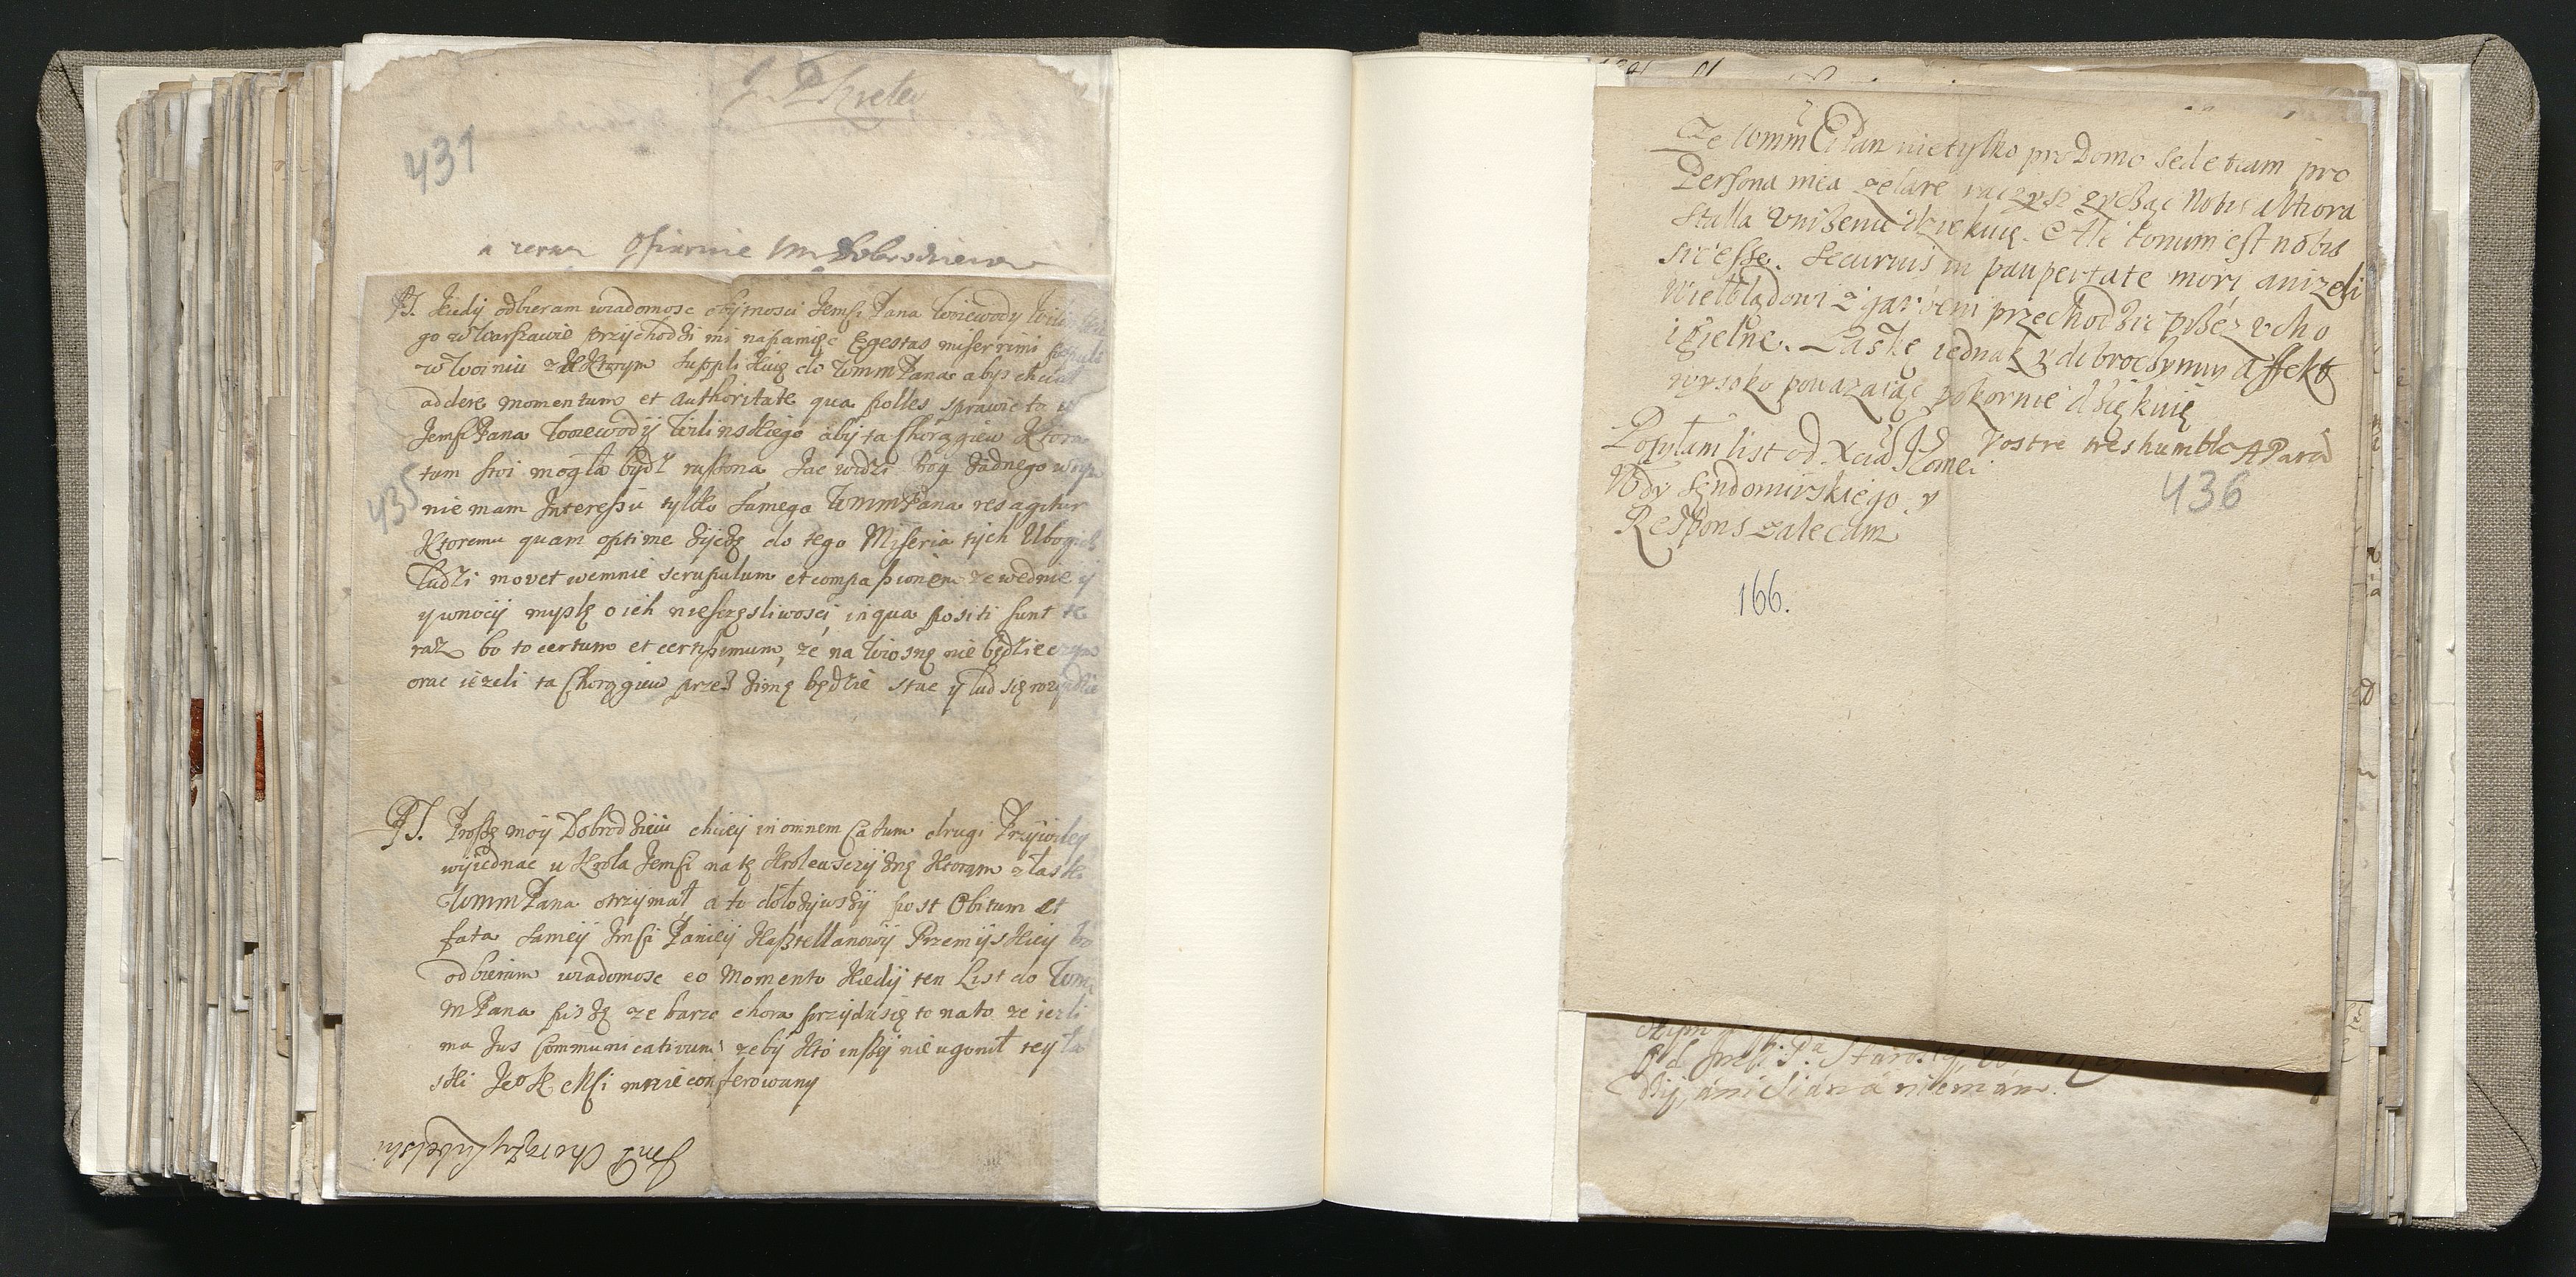 J P Kreter
431
a teraz Ofiarnie Im Dobrodzieiow
PS. Kiedÿ odbieram wiadomosc o bytnosci Jemsci Pana Woiewody Wilinskie
go w Warszawie przychodzi mi na pamięc Egestas miserrimi populi
w Woiniu z Ktorym supplikuię do WmmPana abys chciał
addere momentum et authoritate qua polles sprawic to u
Jemsci Pana Woiewodÿ Wilinskiego abÿ ta Chorągiew Ktora
tam stoi mogła bÿdz ruszona Jac widzi Bog żadnego w tym
nie mam Interessu tylko samego WmmPana res agitur
Ktoremu quam optime żÿczę do tego Miseria tÿch Ubogich
ludzi movet wemnie scrupulum et compassionem ze wednie ÿ
ÿ wnocÿ myslę o ich nieszczęsliwosci, in qua positi sunt te
raz bo to certum et certissimum, że na Wiosnę nie będzie czym
orac ieżeli ta Chorągiew przez zimę będzie stac ÿ lud się rozeydzie
435
PS. Proszę moÿ Dobrodzieiu chcieÿ in omnem Casum drugi Przÿwileÿ
wÿiednac u Krola Jemsci na tę Krolewsczÿznę Ktorąm z łaski
WmmPana otrzÿmał, a to dołożÿwszÿ post Obitum et
fata sameÿ Jmsci Panieÿ Kasztellanowÿ Przemÿskieÿ bo
odbieram wiadomosc eo Momento Kiedÿ ten List do Wm
mPana piszę ze barzo chora przÿda się to na to ze ieżli
ma Jus Communicativum żebÿ Kto inszÿ nie ugonił teÿ ła
ski Jeo K Msci mnie conferowanÿ
JmP Chorąży Lubelski
Ze WmmCi Pan nietylko pro Domo sed etiam pro
Persona mea zelare raczysz życząc Nobis altiora
Stalla Unizenie dziękuię. Ale bonum est nobis
sic esse. Securius in paupertate mori anizeli
Wielbłądowi z garbem przechodzic przez ucho
igielne. Łaskę iednak y dobroczynny Affekt
wysoko powazaiąc pokornie dziękuię
Vostre tres humble A Parã
Posyłam list od Xcia Jomci
Wdy Sendomirskiego y
Respons zalecam
436
166.
Od Jmsci Pa Starosty